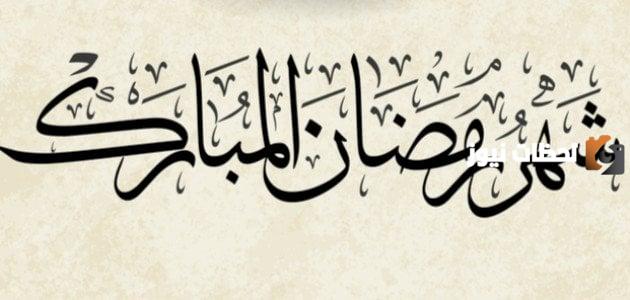 شهر رمضان المبارك
لحظات نيوز